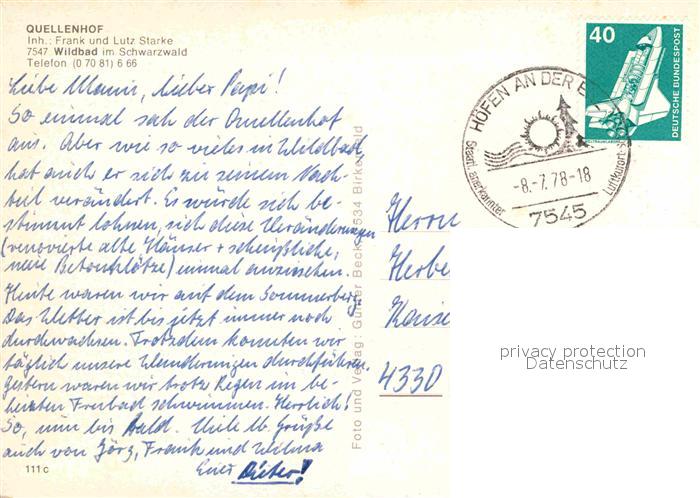 QUELLENHOF
Inh.: Frank und Lutz Starke
7547 Wildbad im Schwarzwald
Telefon (0 70 81) 6 66
Liebe Mami, lieber Papi!
So einmal sah der Quellenhof
aus. Aber wie so vieles in Wildbad
hat auch er sich zu seinem Nach-
teil verändert. Es würde sich be-
stimmt lohnen, sich diese Veränderungen
(renovierte alte Häuser + scheußliche,
neue Betonklötze) einmal anzusehen.
Heute waren wir auf dem Sommerberg.
Das Wetter ist bis jetzt immer noch
durchwachsen. Trotzdem konnten wir
täglich unsere Wanderungen durchführen.
Gestern waren wir trotz Regen im be-
heizten Freibad schwimmen. Herrlich!
So, nun bis bald. Viele lb. Grüße
auch von Jörg, Frank und Wilma
Euer Dieter!
111 c
Foto und Verlag: Günter Beck 7534 Birkenfeld
HÖFEN AN DER E
Staatl. anerkannter
Luftkurort
-8.-7.78-18
7545
40
DEUTSCHE BUNDESPOST
Herrn
Herbe
Kaise
4330
privacy protection
Datenschutz